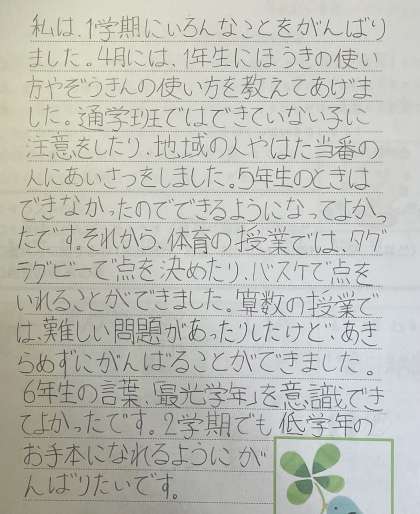 私は、1学期にいろんなことをがんばり
ました。4月には、1年生にほうきの使い
方やぞうきんの使い方を教えてあげま
した。通学班ではできていない子に
注意をしたり、地域の人やはた当番の
人にあいさつをしました。5年生のときは
できなかったのでできるようになってよかっ
たです。それから、体育の授業では、タグ
ラグビーで点を決めたり、バスケで点を
いれることができました。算数の授業で
は、難しい問題があったりしたけど、あき
らめずにがんばることができました。
6年生の言葉、「最光学年」を意識でき
てよかったです。2学期でも低学年の
お手本になれるようにが
んばりたいです。